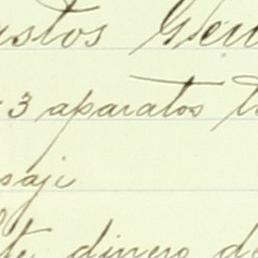 astos Gen
3 aparatos t
saje
te dinero de